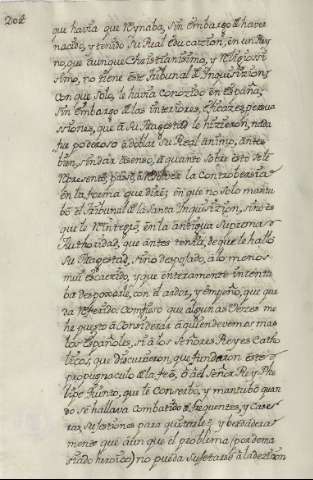 que havia que Reynaba, sin embargo de haver
nacido, y tenido su Real educazion, en un Rey
no, que aunque Christianisimo, y Religiossi
simo, no tiene este Tribunal de Inquisizion,
con que solo, le havia conozido en España;
sin embargo de las interiores, eficazes, persua
ssiones, que a su Magestad le hizieron, nada
fue poderoso a doblar su Real animo, antes
bien, sin dar asenso, a quanto sobre esto se le
Represento, passó, a la Controbersia
en la forma que diré; en que no solo mantu
bó el Tribunal de la Santa Inquisizion, sino es
que le Reintegró, en la antigua suprema
Authoridad, que antes tenia, de que le halló
su Magestad, sino despojado, a lo menos
mui escaezido, y que enteramente intenta
ba despojarle, con el ardor, y empeño, que que
da Referido: confieso que algunas Vezes me
he puesto a Considerar a quien devemos mas
los Españoles, si a los Señores Reyes Catho
licos, que discurrieron, que fundaron este
propugnaculo de la fee, ó al Señor Rey Phe
lipe Quinto, que le Conserbó, y mantubó quan
do se hallava combatido de frequentes, y
sugestiones para quitarle; y verdadera
mente que aunque el problema (por dema
siado heroico) no pueda sujetarse a la dezision